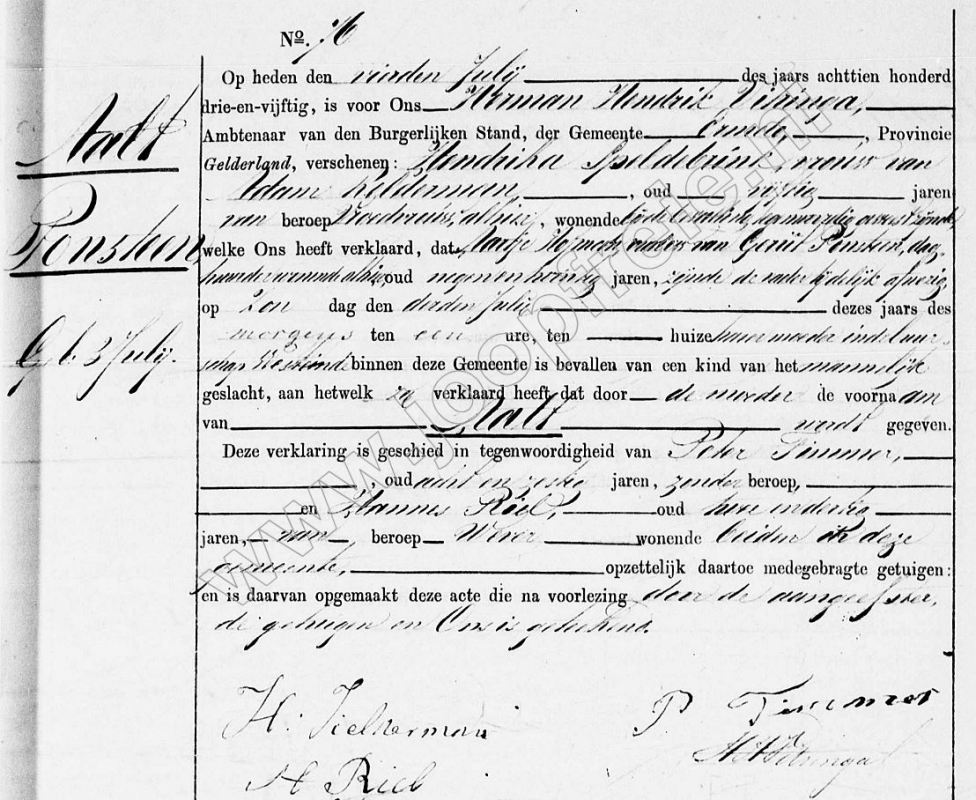 No. 76
Op heden den vierden Julij des jaars achttien honderd
drie-en-vijftig, is voor Ons Herman Hendrik Vitringa,
Ambtenaar van den Burgerlijken Stand, der Gemeente Ermelo, Provincie
Gelderland, verschenen: Hendrika Speldebrink, vrouw van
Adam Kelderman, oud veertig jaren
van beroep Vroedvrouw, alhier, wonende
welke Ons heeft verklaard, dat Aartje huisvrouw van Gerrit Ponsteen, dag
oud negenentwintig jaren, zijnde de vader tijdelijk afwezig,
op Zon dag den derden Julij dezes jaars des
morgens ten een ure, ten huize harer moeder in de buur
schap binnen deze Gemeente is bevallen van een kind van het mannelijk
geslacht, aan hetwelk zij verklaard heeft dat door de moeder de voornaam
van Aalt wordt gegeven.
Deze verklaring is geschied in tegenwoordigheid van Peter Timmer,
, oud acht en zestig jaren, zonder beroep,
en Hannes Riel, oud twee en dertig
jaren, van beroep Wever wonende beiden in deze
gemeente, opzettelijk daartoe medegebragte getuigen:
en is daarvan opgemaakt deze acte die na voorlezing door de aangeefster,
de getuigen en Ons is geteekend.
Aalt
Ponsteen
Geb. 3 Julij.
H. Kelderman
P. Timmer
HHVitringa
H Riel
www.joopfrele.nl